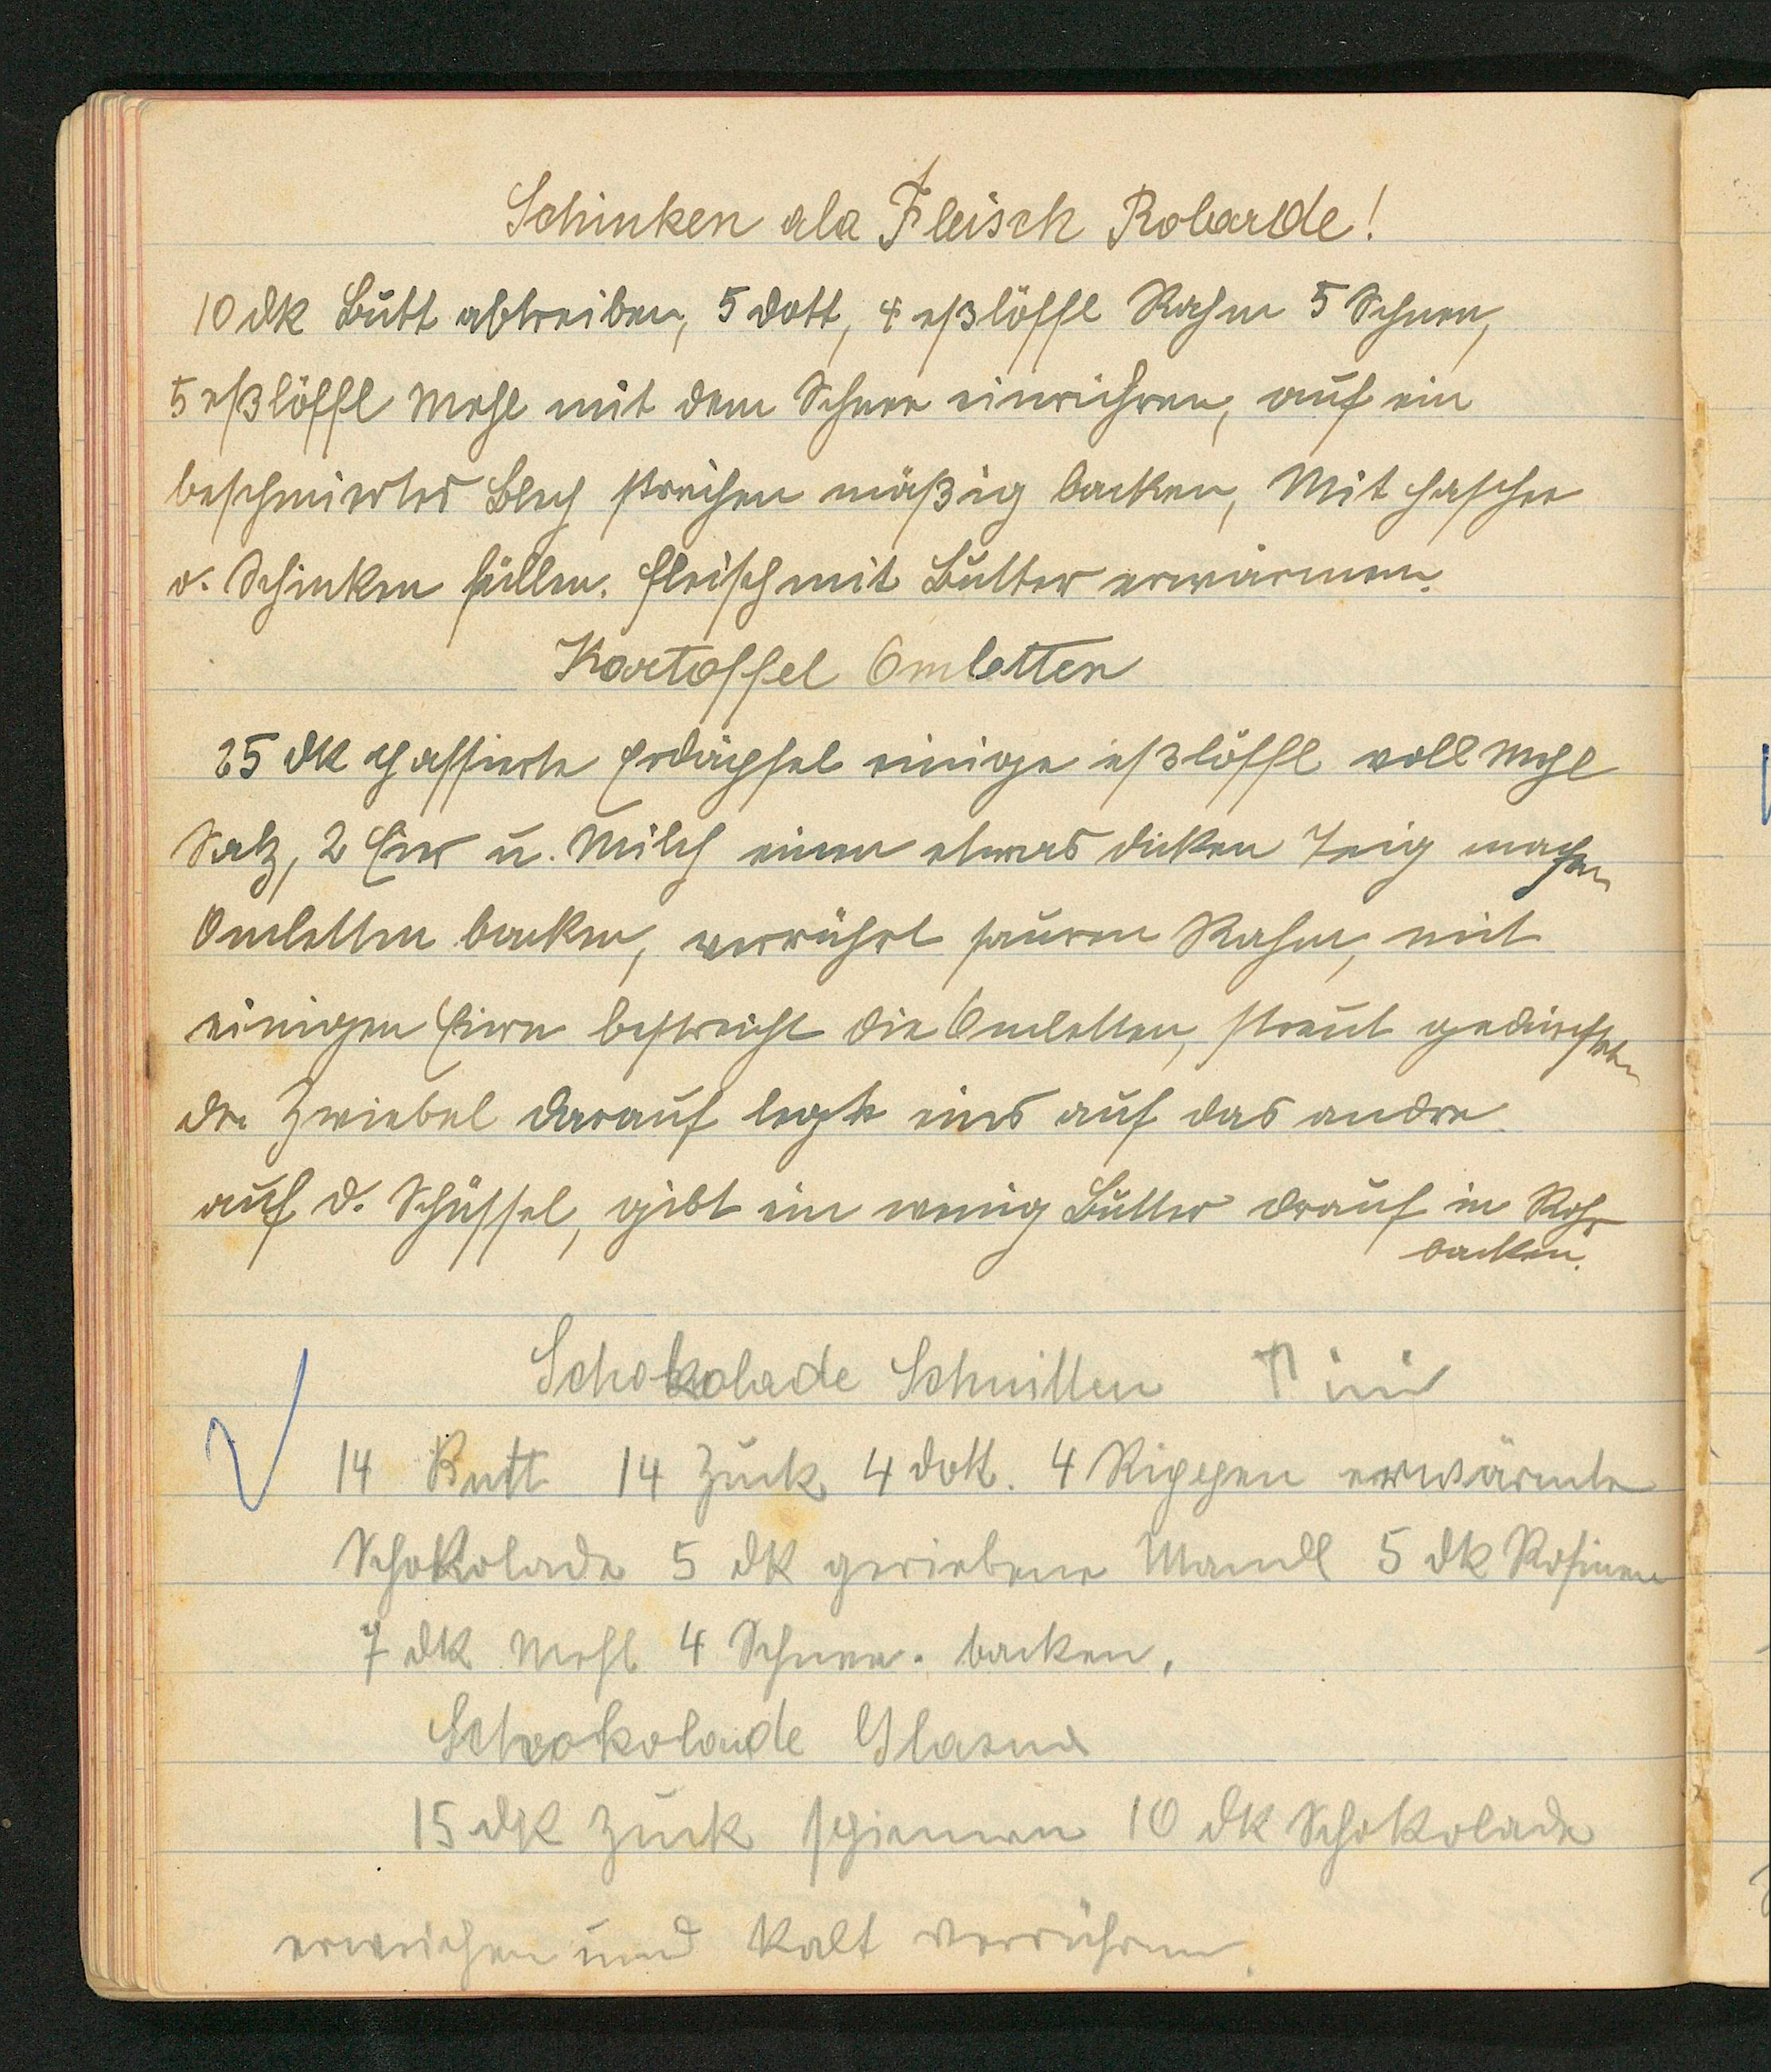 Schinken ala Fleisch Robarde!
10 dk Butt abtreiben, 5 dott, 4 eßlöffl Rahm 5 Schnee,
5 eßlöffl Mehl mit dem Schnee einrühren, auf ein
beschmiertes Blech streichen mäßig backen, Mit haschee
v. Schinken füllen. Fleisch mit Butter erwärmen.
Kartoffel Omletten
25 dk passierte Erdäpfel einige eßlöffl voll Mehl
Salz, 2 Eier u. Milch einen etwas dicken Teig machen
Omletten backen, verrührt sauren Rahm, mit
einigen Eiern bestreicht die Omletten, streut gedünsten
de Zwiebel darauf legte eins auf das andre
auf d. Schüssel, gibt ein wenig Butter drauf in Rohr
backen.
Schokolade Schnitten
14 Butt 14 Zuck 4 dott. 4 Rippen erwärmte
Schokolade 5 dk geriebene Mandl 5 dk Rosinen
7 dk Mehl 4 Schnee. backen.
Schokolade Glasur
15 dk Zuck spinnen 10 dk Schokolade
erweichen und kalt verrühren.